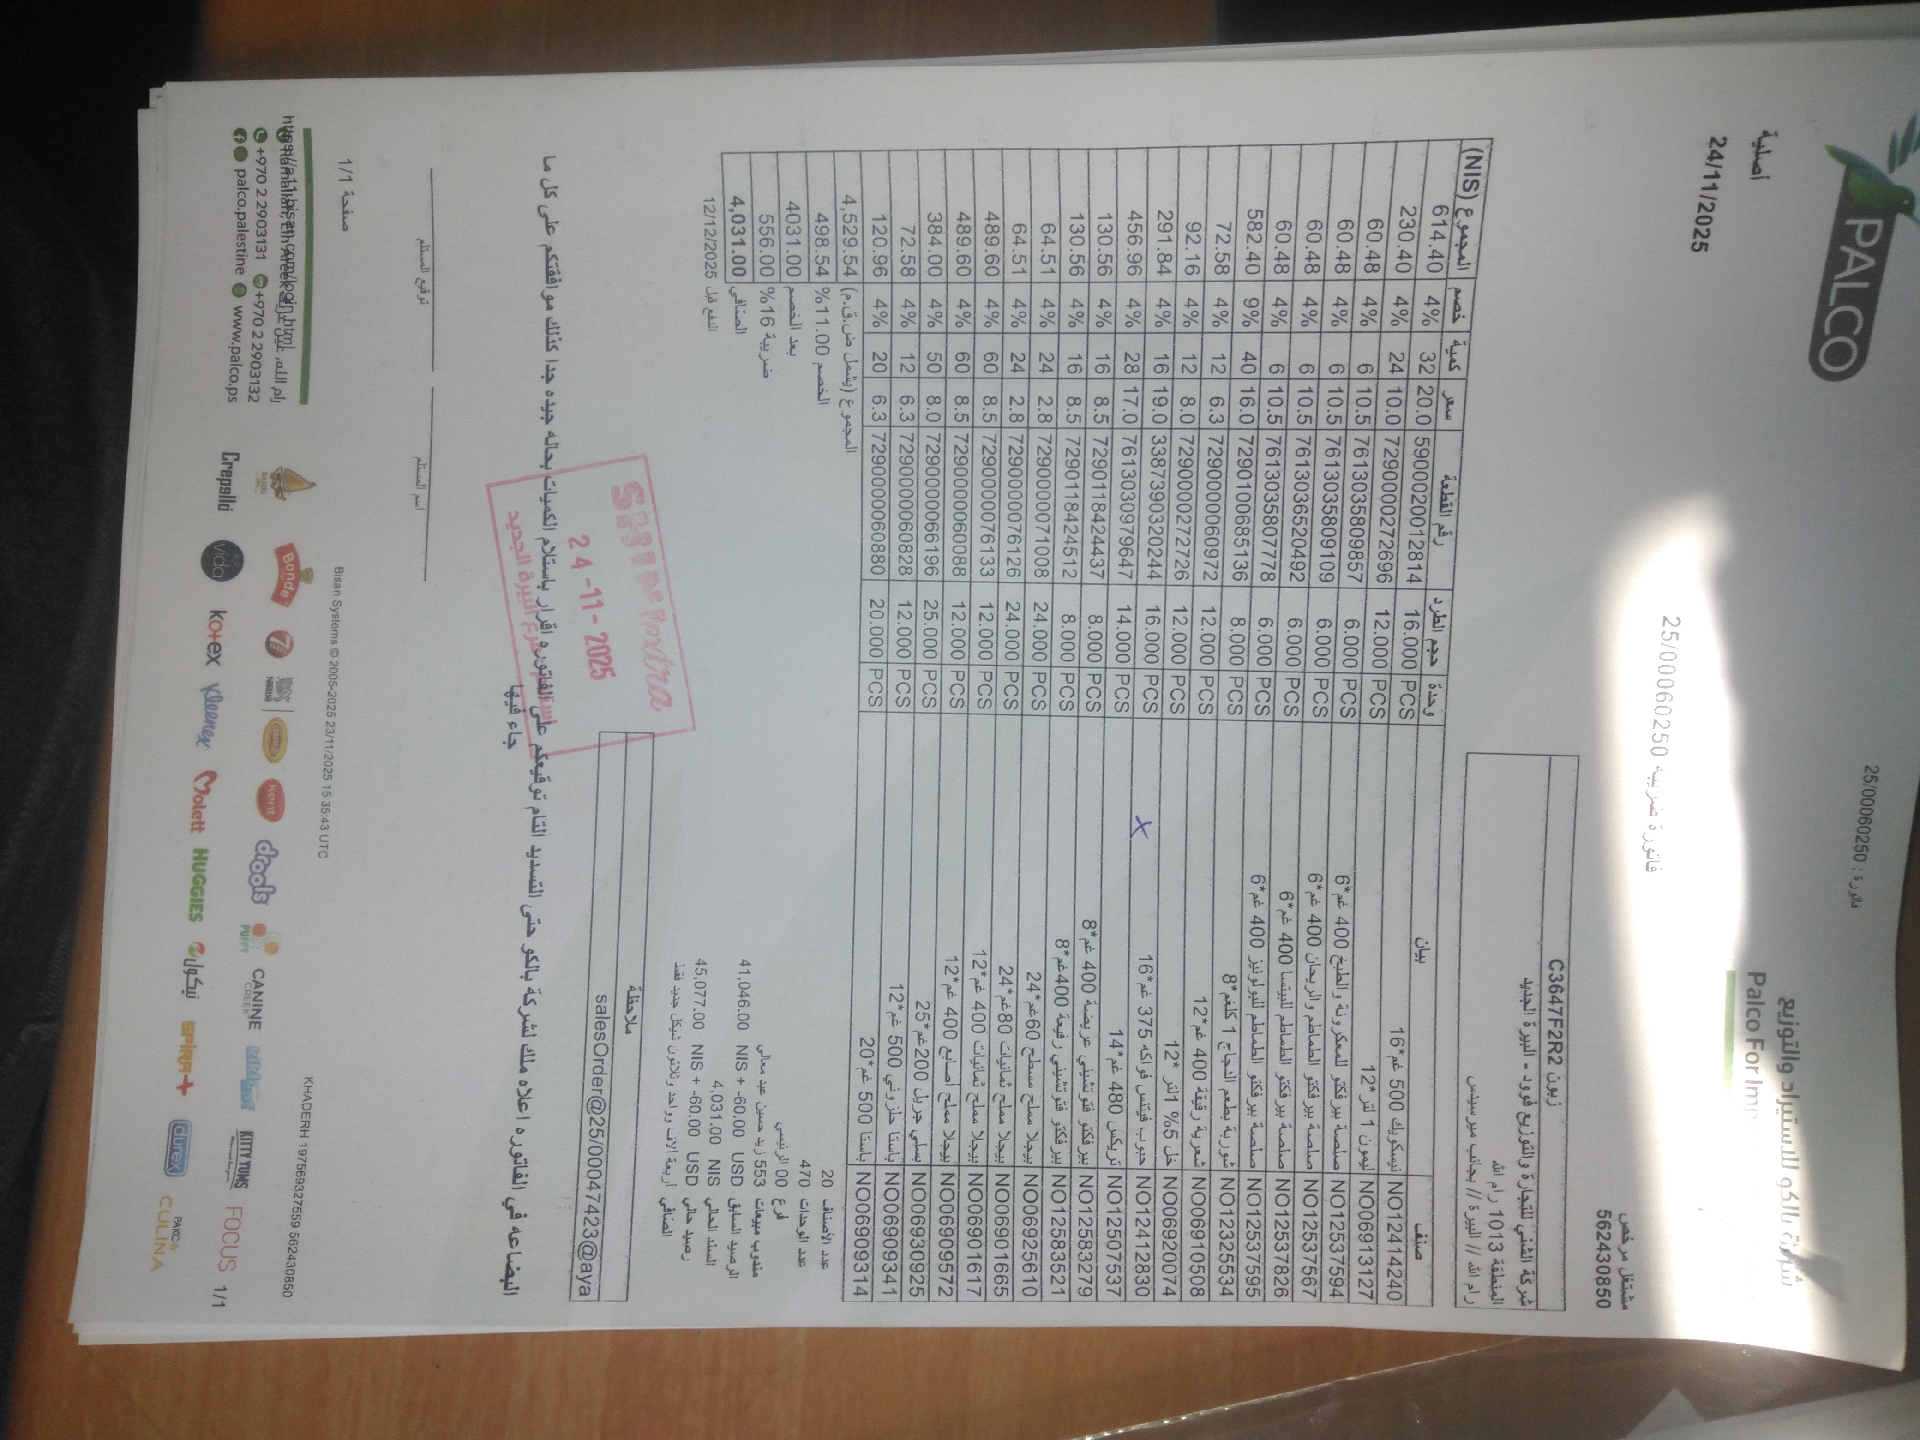 فاتورة : 25/00060250
PALCO
شركة بالكو للاستيراد والتوزيع
Palco For Imp
أصلية
24/11/2025
فاتورة ضريبية 25/00060250
مشتغل مرخص
562430850
زبون C3647F2R2
شركة الشني للتجارة والتوزيع فوود - البيرة الجديد
المنطقة 1013 رام الله
رام الله // البيرة // بجانب ميرسيدس
صنف بيان وحدة حجم الطرد رقم القطعة سعر كمية خصم المجموع (NIS)
NO12414240 نيسكويك 500 غم*16 PCS 16.000 5900020012814 20.0 32 4% 614.40
NO06913127 ليمون 1 لتر *12 PCS 12.000 7290000272696 10.0 24 4% 230.40
NO12537594 صلصة بيرفكتو للمعكرونة والطبخ 400 غم*6 PCS 6.000 7613035809857 10.5 6 4% 60.48
NO12537567 صلصة بيرفكتو الطماطم والريحان 400 غم*6 PCS 6.000 7613035809109 10.5 6 4% 60.48
NO12537826 صلصة بيرفكتو الطماطم للبيتسا 400 غم*6 PCS 6.000 7613036520492 10.5 6 4% 60.48
NO12537595 صلصة بيرفكتو الطماطم للبولونيز 400 غم*6 PCS 6.000 7613035807778 10.5 6 4% 60.48
NO12325534 شوربة بطعم الدجاج 1 كلغم*8 PCS 8.000 7290100685136 16.0 40 9% 582.40
NO06910508 شعرية رقيقة 400 غم*12 PCS 12.000 7290000060972 6.3 12 4% 72.58
NO06920074 خل 5% 1لتر *12 PCS 12.000 7290000272726 8.0 12 4% 92.16
NO12412830 حبوب فيتنس فواكه 375 غم*16 PCS 16.000 3387390320244 19.0 16 4% 291.84
X
NO12507537 تريكس 480 غم*14 PCS 14.000 7613030979647 17.0 28 4% 456.96
NO12583279 بيرفكتو فتوتشيني عريضة 400 غم*8 PCS 8.000 7290118424437 8.5 16 4% 130.56
NO12583521 بيرفكتو فتوتشيني رفيعة 400غم*8 PCS 8.000 7290118424512 8.5 16 4% 130.56
NO06925610 بيجلا مملح مسطح 60غم*24 PCS 24.000 7290000071008 2.8 24 4% 64.51
NO06901665 بيجلا مملح ثمانيات 80غم*24 PCS 24.000 7290000076126 2.8 24 4% 64.51
NO06901617 بيجلا مملح ثمانيات 400 غم*12 PCS 12.000 7290000076133 8.5 60 4% 489.60
NO06909572 بيجلا مملح أصابع 400 غم*12 PCS 12.000 7290000060088 8.5 60 4% 489.60
NO06930925 بسلي جريل 200غم*25 PCS 25.000 7290000066196 8.0 50 4% 384.00
NO06909341 باستا حلزوني 500 غم*12 PCS 12.000 7290000060828 6.3 12 4% 72.58
NO06909314 باستا 500 غم*20 PCS 20.000 7290000060880 6.3 20 4% 120.96
المجموع (يشمل ض.ق.م) 4,529.54
الخصم 11.00% 498.54
بعد الخصم 4031.00
ضريبة 16% 556.00
الصافي 4,031.00
الدفع قبل 12/12/2025
عدد الأصناف 20
عدد الوحدات 470
فرع 00 الرئيسي
مندوب مبيعات 553 زيد حسين عبد معالي
الرصيد السابق 41,046.00 NIS + -60.00 USD
السند الحالي 4,031.00 NIS
رصيد حالي 45,077.00 NIS + -60.00 USD
الصافي اربعة الاف وواحد وثلاثون شيكل جديد فقط
ملاحظة
salesOrder@25/00047423@aya
24-11-2025
البيرة الجديد
البضاعه في الفاتوره اعلاه ملك لشركة بالكو حتى التسديد التام توقيعكم على الفاتوره اقرار باستلام الكميات بحاله جيده جدا كذلك موافقتكم على كل ما
جاء فيها
اسم المستلم
توقيع المستلم
صفحة 1/1
Bisan Systems © 2005-2025 23/11/2025 15:35:43 UTC
KHADERH 19756932​7559 562430850
+970 2 2903131 +970 2 2903132
palco.palestine www.palco.ps
Bonde
kent
drools
PUPPY
CANINE CREEK
KITTY YUMS
FOCUS
1/1
Crepello
vida
kotex
Kleenex
Molett
HUGGIES
نيكول
SPIRR+
durex
PALCO CULINA